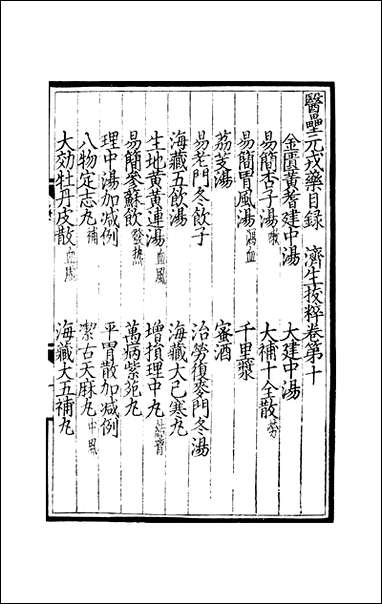 醫壘元戎藥目錄 濟生拔粹卷第十
金匱黃耆建中湯 大建中湯
易簡杏子湯嗽 大補十全散勞
易簡胃風湯瀉血 千里漿
荔芰湯 蜜酒
易老門冬飲子 治勞復麥門冬湯
海藏五飲湯 海藏大己寒丸
生地黃黃連湯血風 增損理中丸結胷
易簡參蘇飲發熱 萬病紫菀丸
理中湯加减例 平胃散加减例
八物定志丸補 潔古天麻丸中風
大効牡丹皮散血風 海藏大五補丸